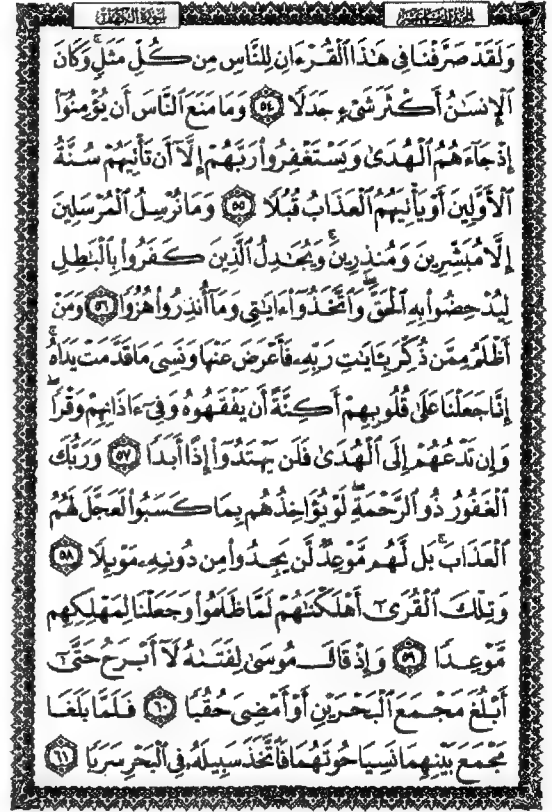 سُورَةُ الْكَهْفِ
وَلَقَدْ صَرَّفْنَا فِي هَٰذَا الْقُرْءَانِ لِلنَّاسِ مِن كُلِّ مَثَلٍ ۚ وَكَانَ
الْإِنسَٰنُ أَكْثَرَ شَىْءٍ جَدَلًا ٥٤ وَمَا مَنَعَ النَّاسَ أَن يُؤْمِنُوٓا۟
إِذْ جَآءَهُمُ الْهُدَىٰ وَيَسْتَغْفِرُوا۟ رَبَّهُمْ إِلَّآ أَن تَأْتِيَهُمْ سُنَّةُ
الْأَوَّلِينَ أَوْ يَأْتِيَهُمُ الْعَذَابُ قُبُلًا ٥٥ وَمَا نُرْسِلُ الْمُرْسَلِينَ
إِلَّا مُبَشِّرِينَ وَمُنذِرِينَ ۚ وَيُجَٰدِلُ الَّذِينَ كَفَرُوا۟ بِالْبَٰطِلِ
لِيُدْحِضُوا۟ بِهِ الْحَقَّ ۖ وَاتَّخَذُوٓا۟ ءَايَٰتِى وَمَآ أُنذِرُوا۟ هُزُوًا ٥٦ وَمَنْ
أَظْلَمُ مِمَّن ذُكِّرَ بِـَٔايَٰتِ رَبِّهِۦ فَأَعْرَضَ عَنْهَا وَنَسِىَ مَا قَدَّمَتْ يَدَاهُ ۚ
إِنَّا جَعَلْنَا عَلَىٰ قُلُوبِهِمْ أَكِنَّةً أَن يَفْقَهُوهُ وَفِىٓ ءَاذَانِهِمْ وَقْرًا ۖ
وَإِن تَدْعُهُمْ إِلَى الْهُدَىٰ فَلَن يَهْتَدُوٓا۟ إِذًا أَبَدًا ٥٧ وَرَبُّكَ
الْغَفُورُ ذُو الرَّحْمَةِ ۖ لَوْ يُؤَاخِذُهُم بِمَا كَسَبُوا۟ لَعَجَّلَ لَهُمُ
الْعَذَابَ ۚ بَل لَّهُم مَّوْعِدٌ لَّن يَجِدُوا۟ مِن دُونِهِۦ مَوْئِلًا ٥٨
وَتِلْكَ الْقُرَىٰٓ أَهْلَكْنَٰهُمْ لَمَّا ظَلَمُوا۟ وَجَعَلْنَا لِمَهْلِكِهِم
مَّوْعِدًا ٥٩ وَإِذْ قَالَ مُوسَىٰ لِفَتَىٰهُ لَآ أَبْرَحُ حَتَّىٰٓ
أَبْلُغَ مَجْمَعَ الْبَحْرَيْنِ أَوْ أَمْضِىَ حُقُبًا ٦٠ فَلَمَّا بَلَغَا
مَجْمَعَ بَيْنِهِمَا نَسِيَا حُوتَهُمَا فَاتَّخَذَ سَبِيلَهُۥ فِى الْبَحْرِ سَرَبًا ٦١